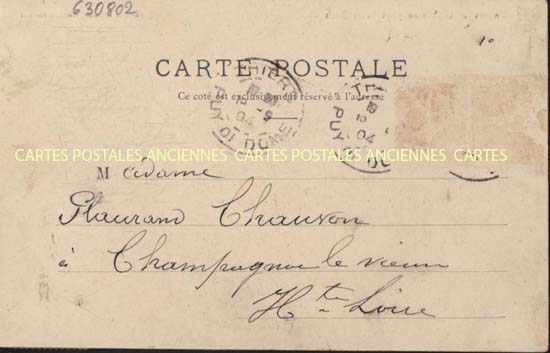 630802
CARTE POSTALE
Ce côté est exclusivement réservé à l'adresse
THIERS
04
PUY DE DOME
04
PUY DE DO
CARTES POSTALES ANCIENNES CARTES POSTALES ANCIENNES CARTES
Madame
Plaurand Chauvon
à Champagnac le vieux
Hte Loire